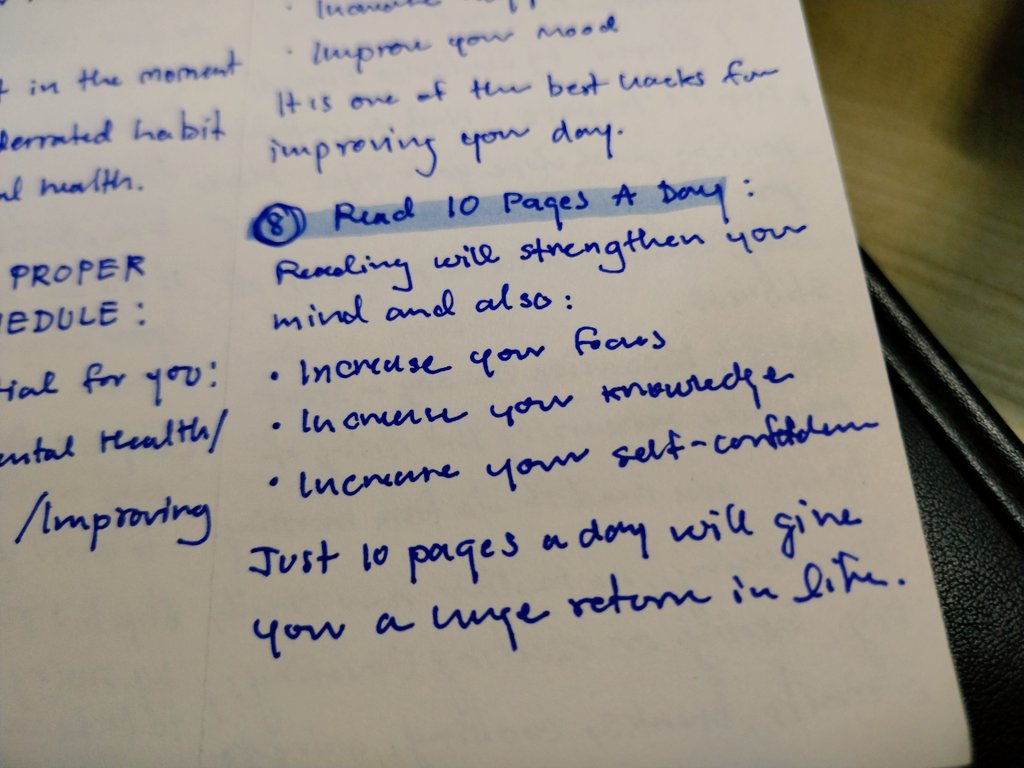 in the moment
habit
health.
PROPER
for you:
Health/
/Improving
Increase
• Improve your mood
It is one of the best hacks for
improving your day.
⑧ Read 10 Pages A Day :
Reading will strengthen your
mind and also :
• Increase your focus
• Increase your knowledge
• Increase your self-confidence
Just 10 pages a day will give
you a huge return in life.